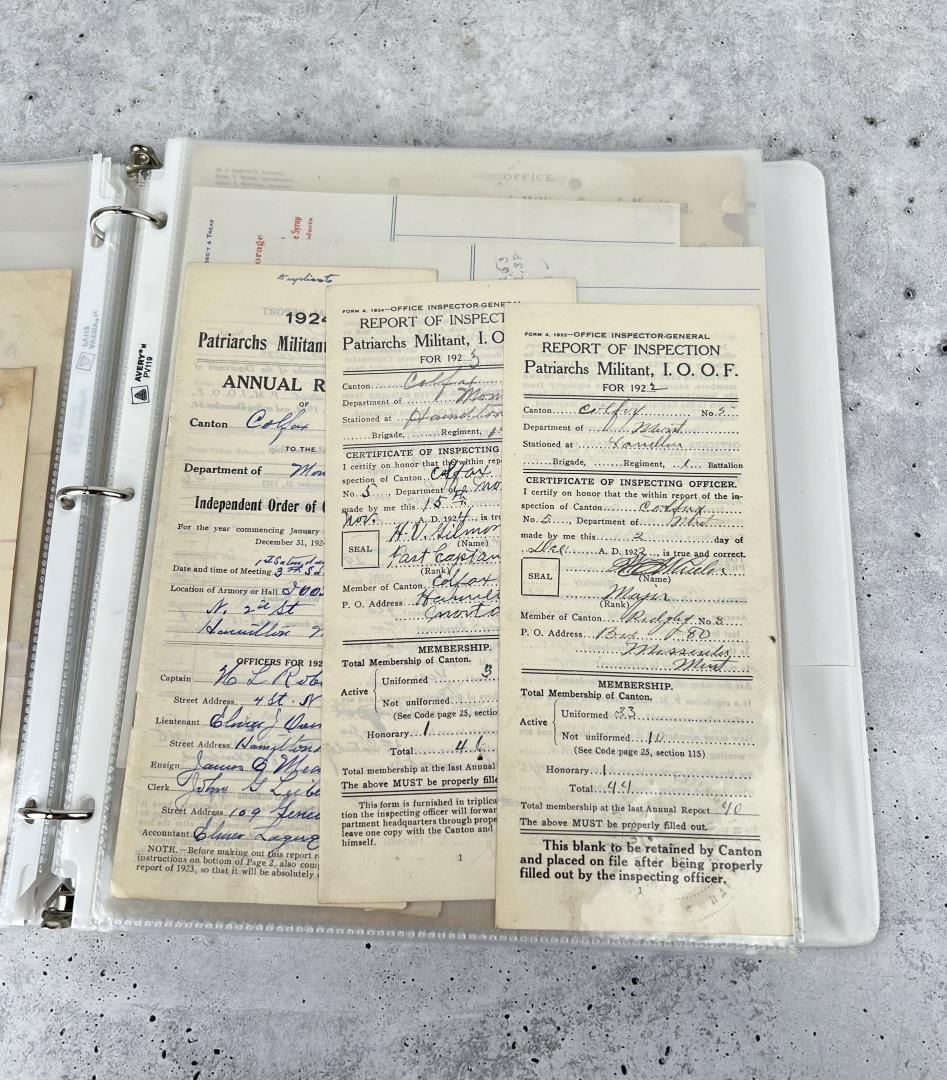 OFFICE
SEC'Y & TREAS
orage
e Syrup
oducts
AVERY®
PV119
Duplicate
1924
Patriarchs Militan
ANNUAL R
OF
Canton Colfax
TO THE
Department of Mon
Independent Order of
For the year commencing January
December 31, 192
Date and time of Meeting
Location of Armory or Hall
N. 2nd St
Hamilton
OFFICERS FOR 192
Captain
Street Address 4 St. N
Lieutenant Elmer J
Street Address Hamilton
Ensign James
Clerk John G
Street Address 109
Accountant Elmer
NOTE.—Before making out this report r
instructions on bottom of Page 2, also com
report of 1923, so that it will be absolutely
FORM 4, 1924—OFFICE INSPECTOR-GENE
REPORT OF INSPECT
Patriarchs Militant, I. O
FOR 192
Canton Colfax
Department of Mon
Stationed at Hamilton
Brigade, Regiment,
CERTIFICATE OF INSPECTING
I certify on honor that the within repo
spection of Canton Colfax
No. 5, Department of Mo
made by me this 15th
Nov. A. D. 1924 is tru
H. V. Gilmor
(Name)
SEAL
Past Captain
(Rank)
Member of Canton Colfax
P. O. Address Hamilt
MEMBERSHIP.
Total Membership of Canton.
Active
Uniformed
Not uniformed
(See Code page 25, sectio
Honorary 1
Total 46
Total membership at the last Annual
The above MUST be properly fille
This form is furnished in triplica
tion the inspecting officer will forwar
partment headquarters through prope
leave one copy with the Canton and
himself.
1
FORM 4, 1922—OFFICE INSPECTOR-GENERAL
REPORT OF INSPECTION
Patriarchs Militant, I. O. O. F.
FOR 1922
Canton Colfax No. 5
Department of Mont
Stationed at Hamilton
Brigade, Regiment, 1 Battalion
CERTIFICATE OF INSPECTING OFFICER.
I certify on honor that the within report of the in-
spection of Canton Colfax
No. 5, Department of
made by me this 2 day of
Dec A. D. 1922 is true and correct.
(Name)
SEAL
Major
(Rank)
Member of Canton Ridgley No. 3
P. O. Address Box 780
Missoula
Mont
MEMBERSHIP.
Total Membership of Canton.
Active
Uniformed 33
Not uniformed 10
(See Code page 25, section 115)
Honorary 1
Total 44
Total membership at the last Annual Report 40
The above MUST be properly filled out.
This blank to be retained by Canton
and placed on file after being properly
filled out by the inspecting officer.
1